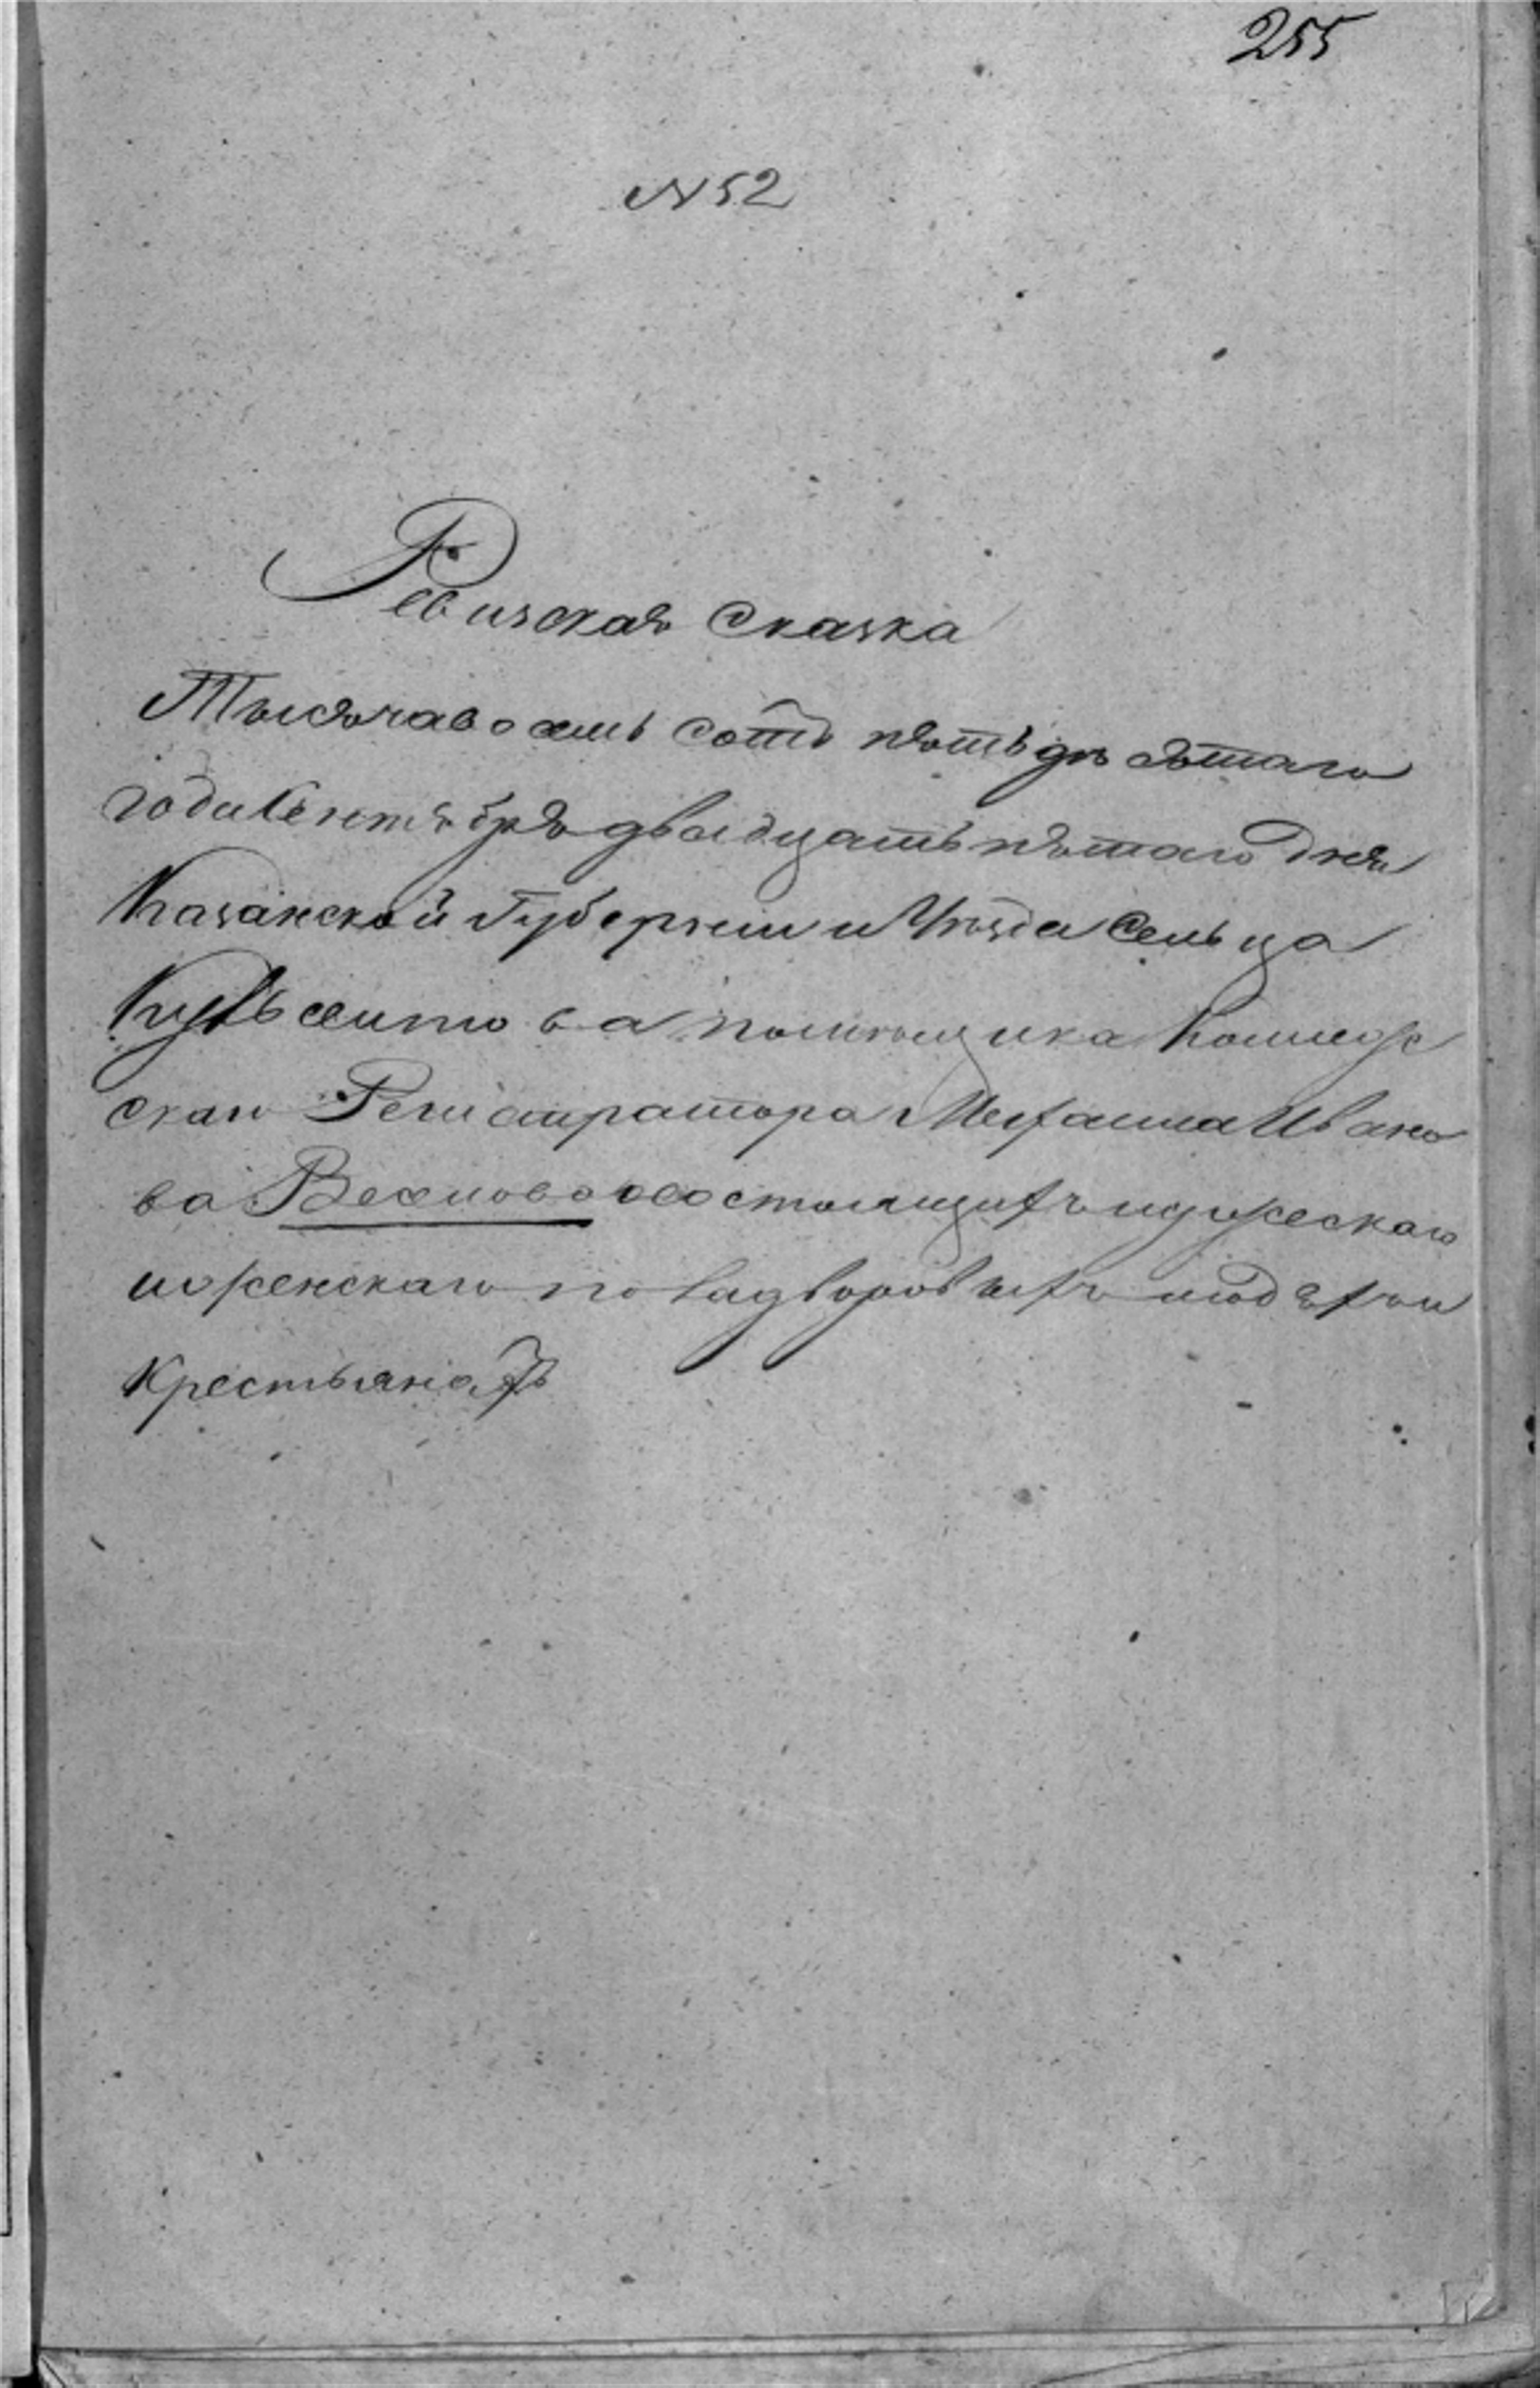 255
N 52
Ревизская Сказка
Тысяча восемь сотъ пятьдесятаго
года Сентября двадцать пятаго дня
Казанской Губернии и Уѣзда Сельца
помѣщика Коллеж
скаго Регистратора Михаила Ивано
ва о состоящихъ мужескаго
и женскаго пола дворовыхъ людяхъ и
крестьянахъ